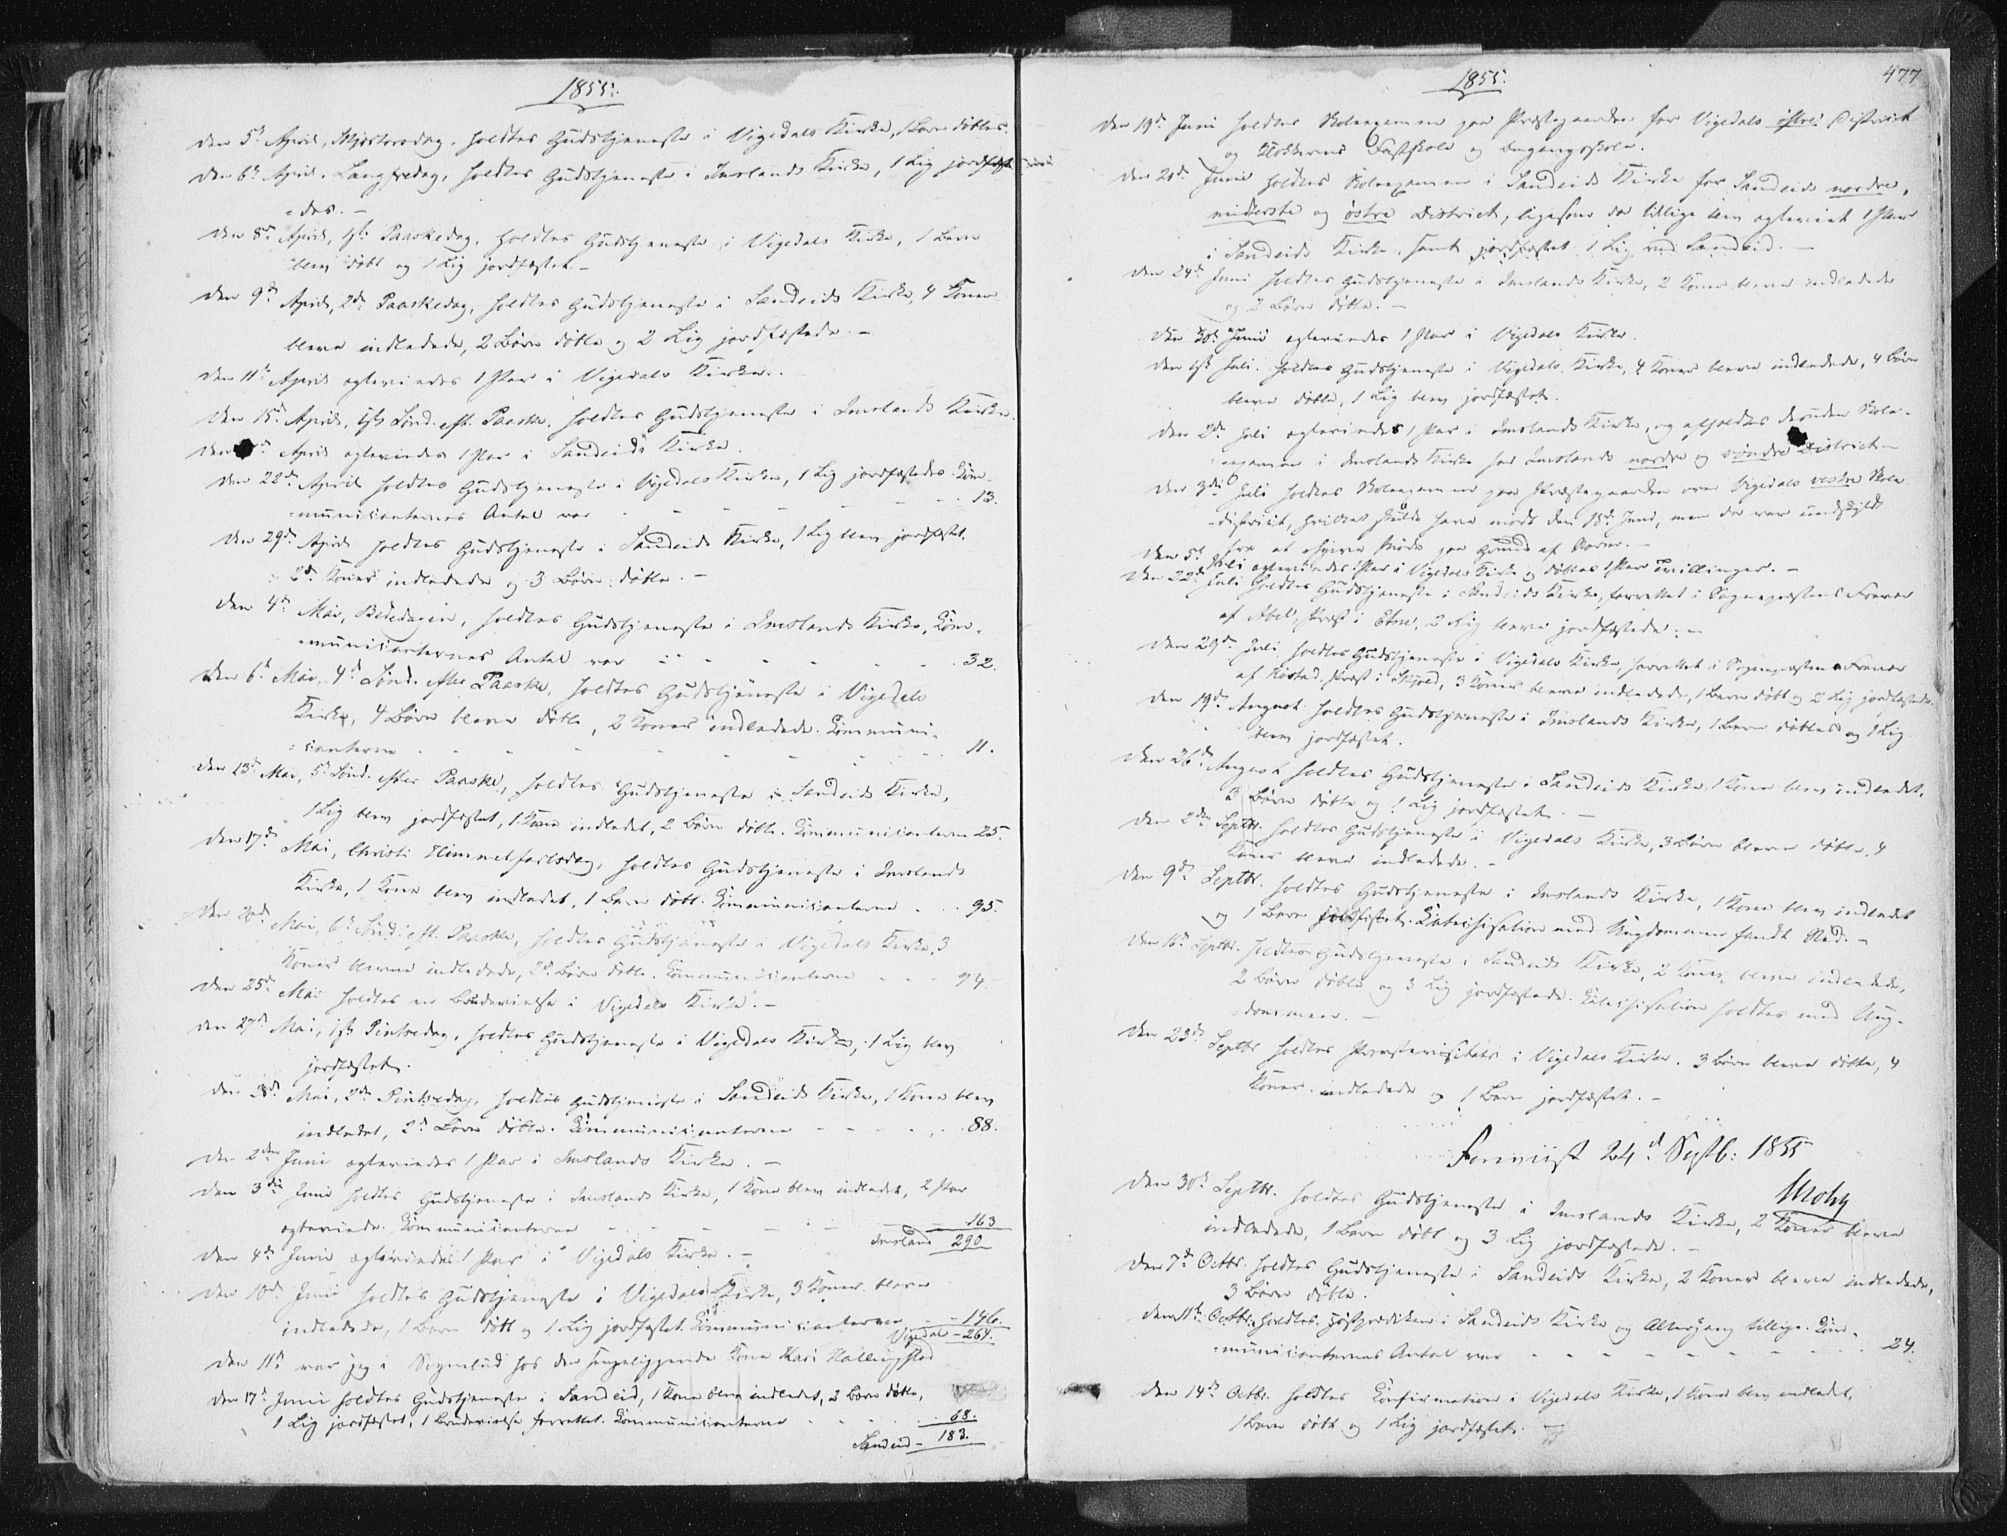 1855.
Den 5te April, Skjertorsdag, holdtes Gudstjeneste i Vigedals Kirke, 1 Barn døbtes.
Den 6te April, Langfredag, holdtes Gudstjeneste i Imslands Kirke, 1 Lig jordfæste-
-des.-
Den 8de April, 1ste Paaskedag, holdtes Gudstjeneste i Vigedals Kirke, 1 Barn
blev døbt og 1 Lig jordfæstet.-
Den 9de April, 2den Paaskedag, holdtes Gudstjeneste i Sandeids Kirke, 4 Koner
bleve indledede, 2 Børn døbte og 2 Lig jordfæstede.-
Den 11te April ægteviedes 1 Par i Vigedals Kirke.
Den 15de April, 1ste Sønd. eft. Paaske, holdtes Gudstjeneste i Imslands Kirke.
Den April ægteviedes 1 Par i Sandeids Kirke.
Den 22de April holdtes Gudstjeneste i Vigedals Kirke, 1 Lig jordfæstedes. Com-
-municanternes Antal var - - - - - 13.
Den 29de April holdtes Gudstjeneste i Sandeids Kirke, 1 Lig blev jordfæstet,
2de Koner indledede og 3 Børn døbte.-
Den 4de Mai, Bededagen, holdtes Gudstjeneste i Imslands Kirke, Com-
-municanternes Antal var - - - - - 32.
Den 6te Mai, 4de Sønd. efter Paaske, holdtes Gudstjeneste i Vigedals
Kirke, 4 Børn bleve døbte, 2 Koner indledede. Communi-
-canterne - - - - - 11.
Den 13de Mai, 5te Sønd. efter Paaske, holdtes Gudstjeneste i Sandeids Kirke,
1 Lig blev jordfæstet, 1 Kone indledet, 2 Børn døbte. Communicanterne 25.
Den 17de Mai, Christi Himmelfartsdag, holdtes Gudstjeneste i Imslands
Kirke, 1 Kone blev indledet, 1 Barn døbt. Communicanterne - - 95.
Den 20de Mai, 6te Sønd. eft. Paaske, holdtes Gudstjeneste i Vigedals Kirke, 3
Koner bleve indledede, 2de Børn døbte. Communicanterne - - 94
Den 25de Mai holdtes en Brudevielse i Vigedals Kirke.-
Den 27de Mai, 1ste Pintsedag, holdtes Gudstjeneste i Vigedals Kirke, 1 Lig blev
jordfæstet.
Den 28de Mai, 2den Pintsedag, holdtes Gudstjeneste i Sandeids Kirke, 1 Kone blev
indledet, 2de Børn døbte. Communicanterne - - - 88.
Den 2den Juni ægteviedes 1 Par i Imslands Kirke.-
Den 3die Juni holdtes Gudstjeneste i Imslands Kirke, 1 Kone blev indledet, 2 Par
ægteviede. Communicanterne - - - - 163
Imsland 290
Den 4de Juni ægteviedes 1 Par i Vigedals Kirke.-
Den 10de Juni holdtes Gudstjeneste i Vigedals Kirke, 3 Koner bleve
indledede, 1 Barn døbt og 1 Lig jordfæstet. Communicanterne - 146.
Vigedal - 264.
Den 11te var jeg i Sognebud hos den sengeliggende Kone Kari Hallingstad
Den 17de Juni holdtes Gudstjeneste i Sandeid, 1 Kone blev indledet, 2 Børn døbte,
1 Lig jordfæstet, 1 Brudevielse forrettet. Communicanterne - - - 68.
Sandeid - 183.
1855.
477
Den 19de Juni holdtes Skoleexamen paa Præstegaarden for Vigedals østre District
og Klokkerens Fastskole og Omgangsskole.
Den Juni holdtes Skoleexamen i Sandeids Kirke for Sandeids nordre,
midterste og østre District, ligesom der tillige blev ægteviet 1 Par
i Sandeids Kirke, samt jordfæstet 1 Lig ved Sandeid.-
Den 24de Juni holdtes Gudstjeneste i Imslands Kirke, 2 Koner bleve indledede
og 2 Børn døbte.-
Den 30te Juni ægteviedes 1 Par i Vigedals Kirke.
Den 1ste Juli holdtes Gudstjeneste i Vigedals Kirke, 4 Koner bleve indledede, 4 Børn
bleve døbte, 1 Lig blev jordfæstet.
Den 2den Juli ægteviedes 1 Par i Imslands Kirke, og afholdtes desuden Skole-
examen i Imslands Kirke for Imslands nordre og søndre District.-
Den 3die Juli holdtes Skoleexamen paa Præstegaarden over Vigedals vestre Skole-
-district, hvilket skulde have mødt den 18de Juni, men da var undskyldt
fra at Møde paa Grund af
Den 5te Juli ægteviedes 1 Par i Vigedals Kirke og døbtes 1 Par Tvillinger.-
Den 22de Juli holdtes Gudstjeneste i Sandeids Kirke, forrettet i Sognepræstens Fravær
af Abel, Præst i Etne, 2 Lig bleve jordfæstede.-
Den 29de Juli holdtes Gudstjeneste i Vigedals Kirke, forrettet i Sognepræstens Fravær
af Præst i Skjold, 3 Koner bleve indledede, 1 Barn døbt og 2 Lig jordfæstede.
Den 19de August holdtes Gudstjeneste i Imslands Kirke, 1 Barn døbtes og 1 Lig
blev jordfæstet.
Den 26de August holdtes Gudstjeneste i Sandeids Kirke, 1 Kone blev indledet,
3 Børn døbte og 1 Lig jordfæstet.-
Den 2den Septbr. holdtes Gudstjeneste i Vigedals Kirke, 3 Børn bleve døbte, 4
Koner bleve indledede.-
Den 9de Septbr. holdtes Gudstjeneste i Imslands Kirke, 1 Kone blev indledet
og 1 Barn jordfæstet. Catechisation med Ungdommen fandt Sted.-
Den 16de Septbr. holdtes Gudstjeneste i Sandeids Kirke, 2 Koner bleve indledede,
2 Børn døbte og 3 Lig jordfæstede. Catechisation holdtes med Ung-
-dommen.-
Den 23de Septbr holdtes Provstevisitats i Vigedals Kirke. 3 Børn bleve døbte, 4
Koner indledede og 1 Barn jordfæstet.-
Fremviist 24de Septb: 1855
Den 30te Septbr. holdtes Gudstjeneste i Imslands Kirke, 2 Koner bleve
indledede, 1 Barn døbt og 3 Lig jordfæstede.-
Den 7de Octbr. holdtes Gudstjeneste i Sandeids Kirke, 2 Koner bleve indledede,
3 Børn døbte.
Den 11te Octbr. holdtes Høstprædiken i Sandeids Kirke og Altergang tillige. Com-
-municanternes Antal var - - - - - 24.
Den 14de Octbr. holdtes Confirmation i Vigedals Kirke, 1 Kone blev indledet,
1 Barn døbt og 1 Lig jordfæstet.-